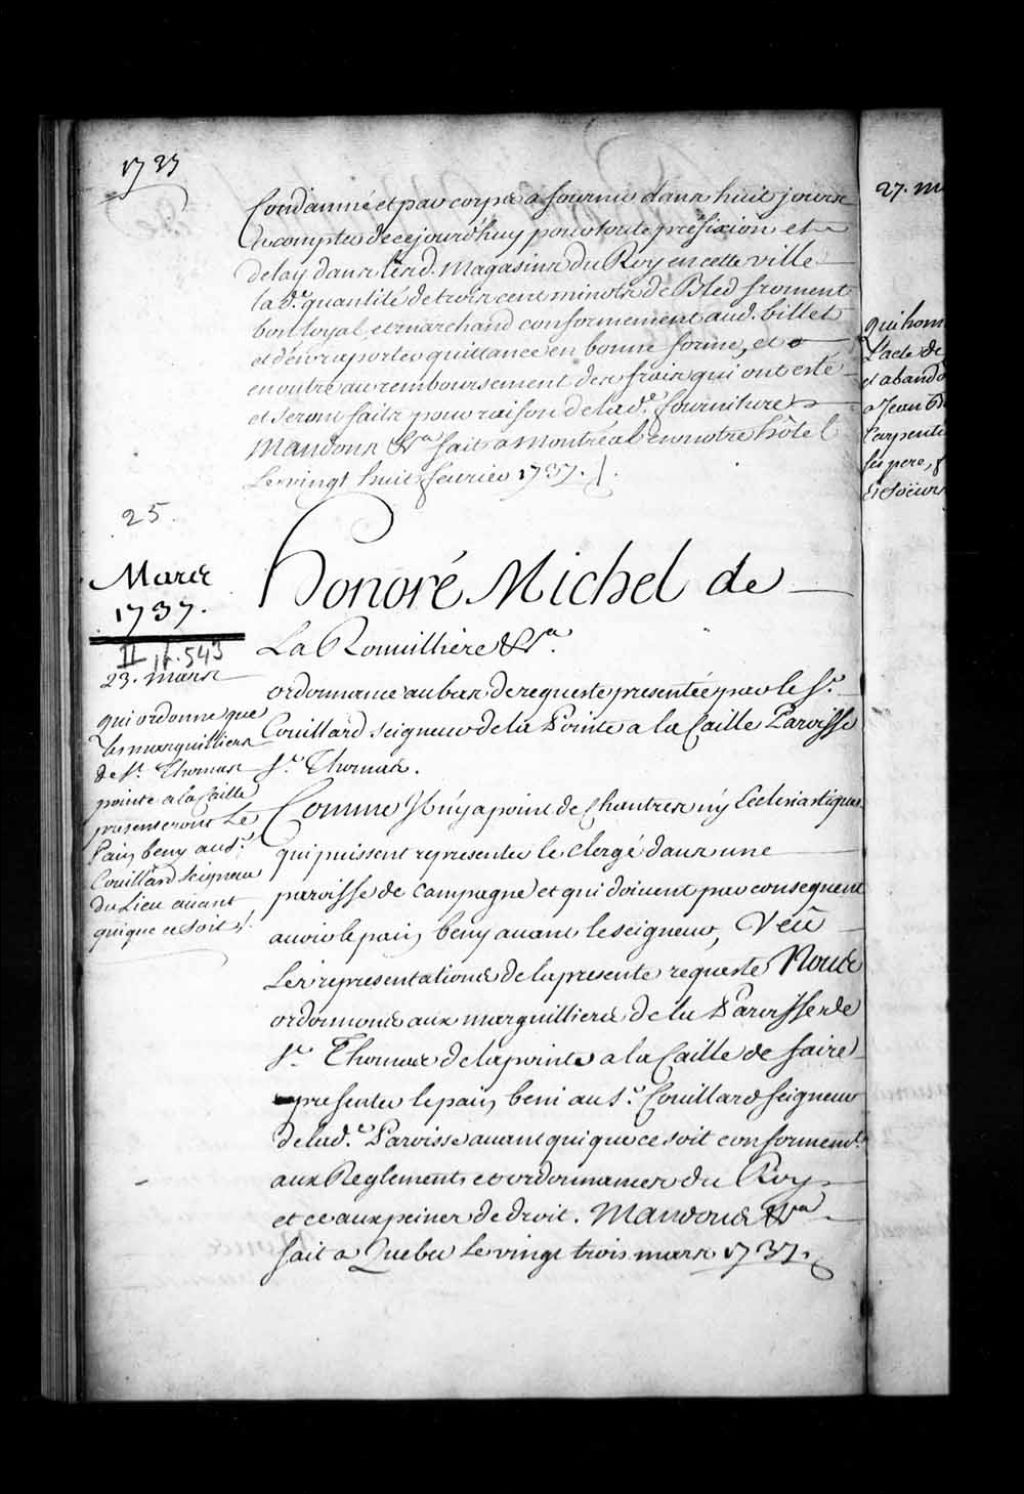 1737
Condamné et par corps a fournir dans huit jours
a compter de ce jourd'huy pour toute préfixion et
delay dans les d. Magasins du Roy en cette ville
la d.e quantité de trois cent minots de Bled froment
bon loyal et marchand conformement aud. billet
et d'en raporter quittance en bonne forme, et
en outre au remboursement des frais qui ont esté
et seront faits pour raison de lad.e fourniture
Mandons &ra fait a Montréal en notre hôtel
Le vingt huit fevrier 1737.
25.
Mars
1737.
II p. 543
23. mars
qui ordonne que
les marguilliers
de St. Thomas
pointe a la Caille
presenteront Le
Pain beny aud. Sr.
Couillard seigneur
du Lieu avant
qui que ce soit
Honoré Michel de
La Rouvilliere &ra.
ordonnance au bas de requeste presentée par le Sr.
Couillard seigneur de la Pointe a la Caille Paroisse
St. Thomas.
Comme Il n'y a point de Chantres n'y Ecclesiastiques
qui puissent representer le clergé dans une
paroisse de campagne et qui doivent par consequent
avoir le pain beny avant le seigneur, Veü
Les representations de la presente requeste Nous
ordonnons aux marguilliers de la Paroisse de
St. Thomas de la pointe a la Caille de faire
presenter le pain beni au Sr. Couillard seigneur
de lad.e Paroisse avant qui que ce soit conformemt.
aux Reglements et ordonnances du Roy
et ce aux peines de droit. Mandons &ra
fait a Quebec Le vingt trois mars 1737.
27. m
qui hom
l'acte de
et abando
a Jean
Carpenti
ses pere,
et soeurs